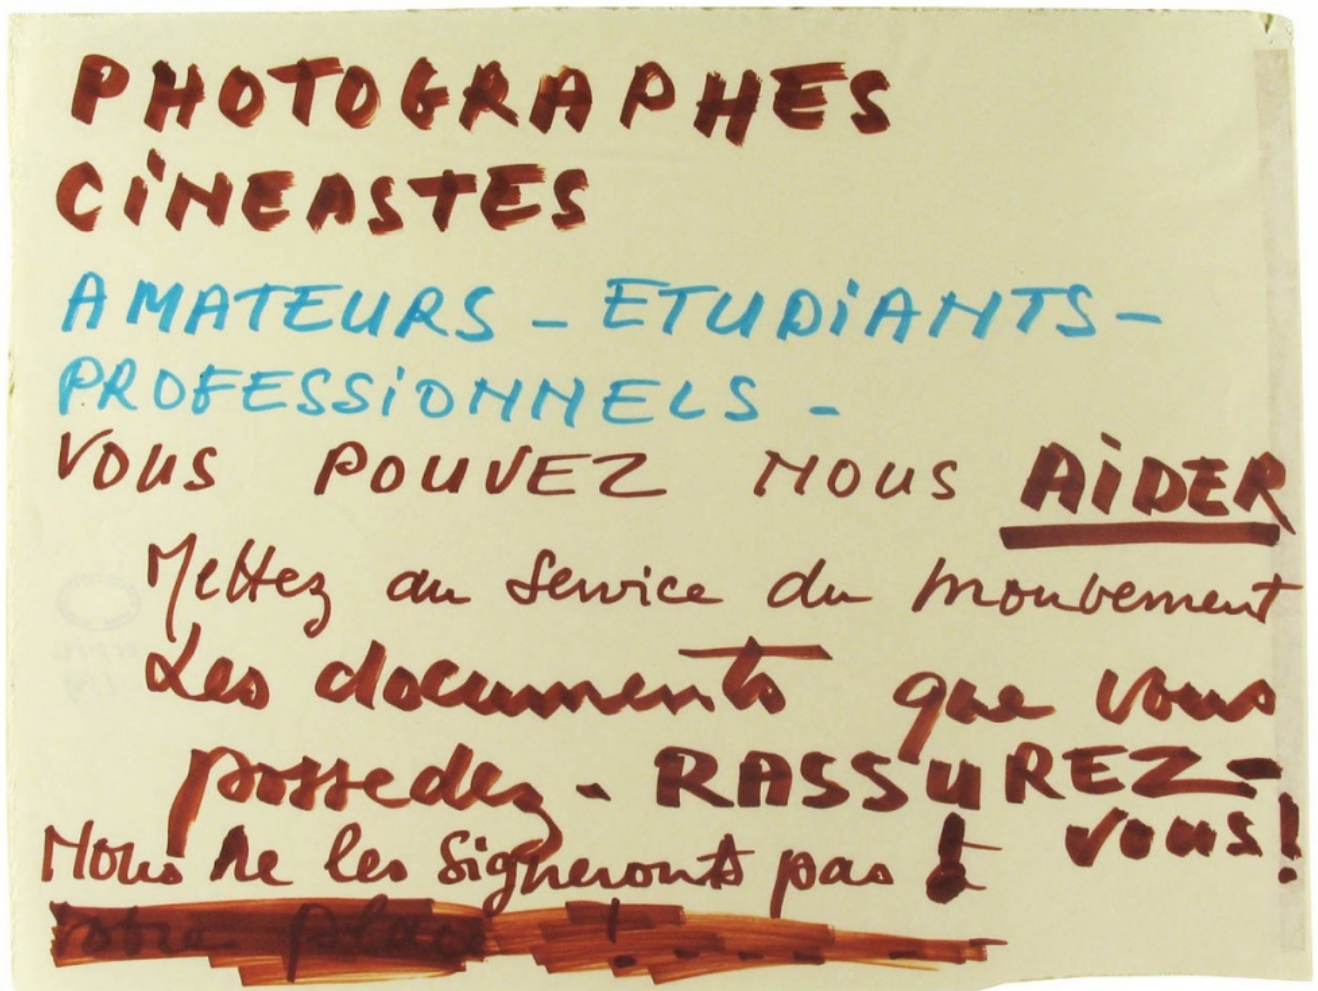 PHOTOGRAPHES
CINEASTES
AMATEURS - ETUDIANTS -
PROFESSIONNELS -
VOUS POUVEZ NOUS AIDER
Mettez au service du mouvement
Les documents que vous
possedez - RASSUREZ-
vous!
Nous ne les signeronts pas
votre place